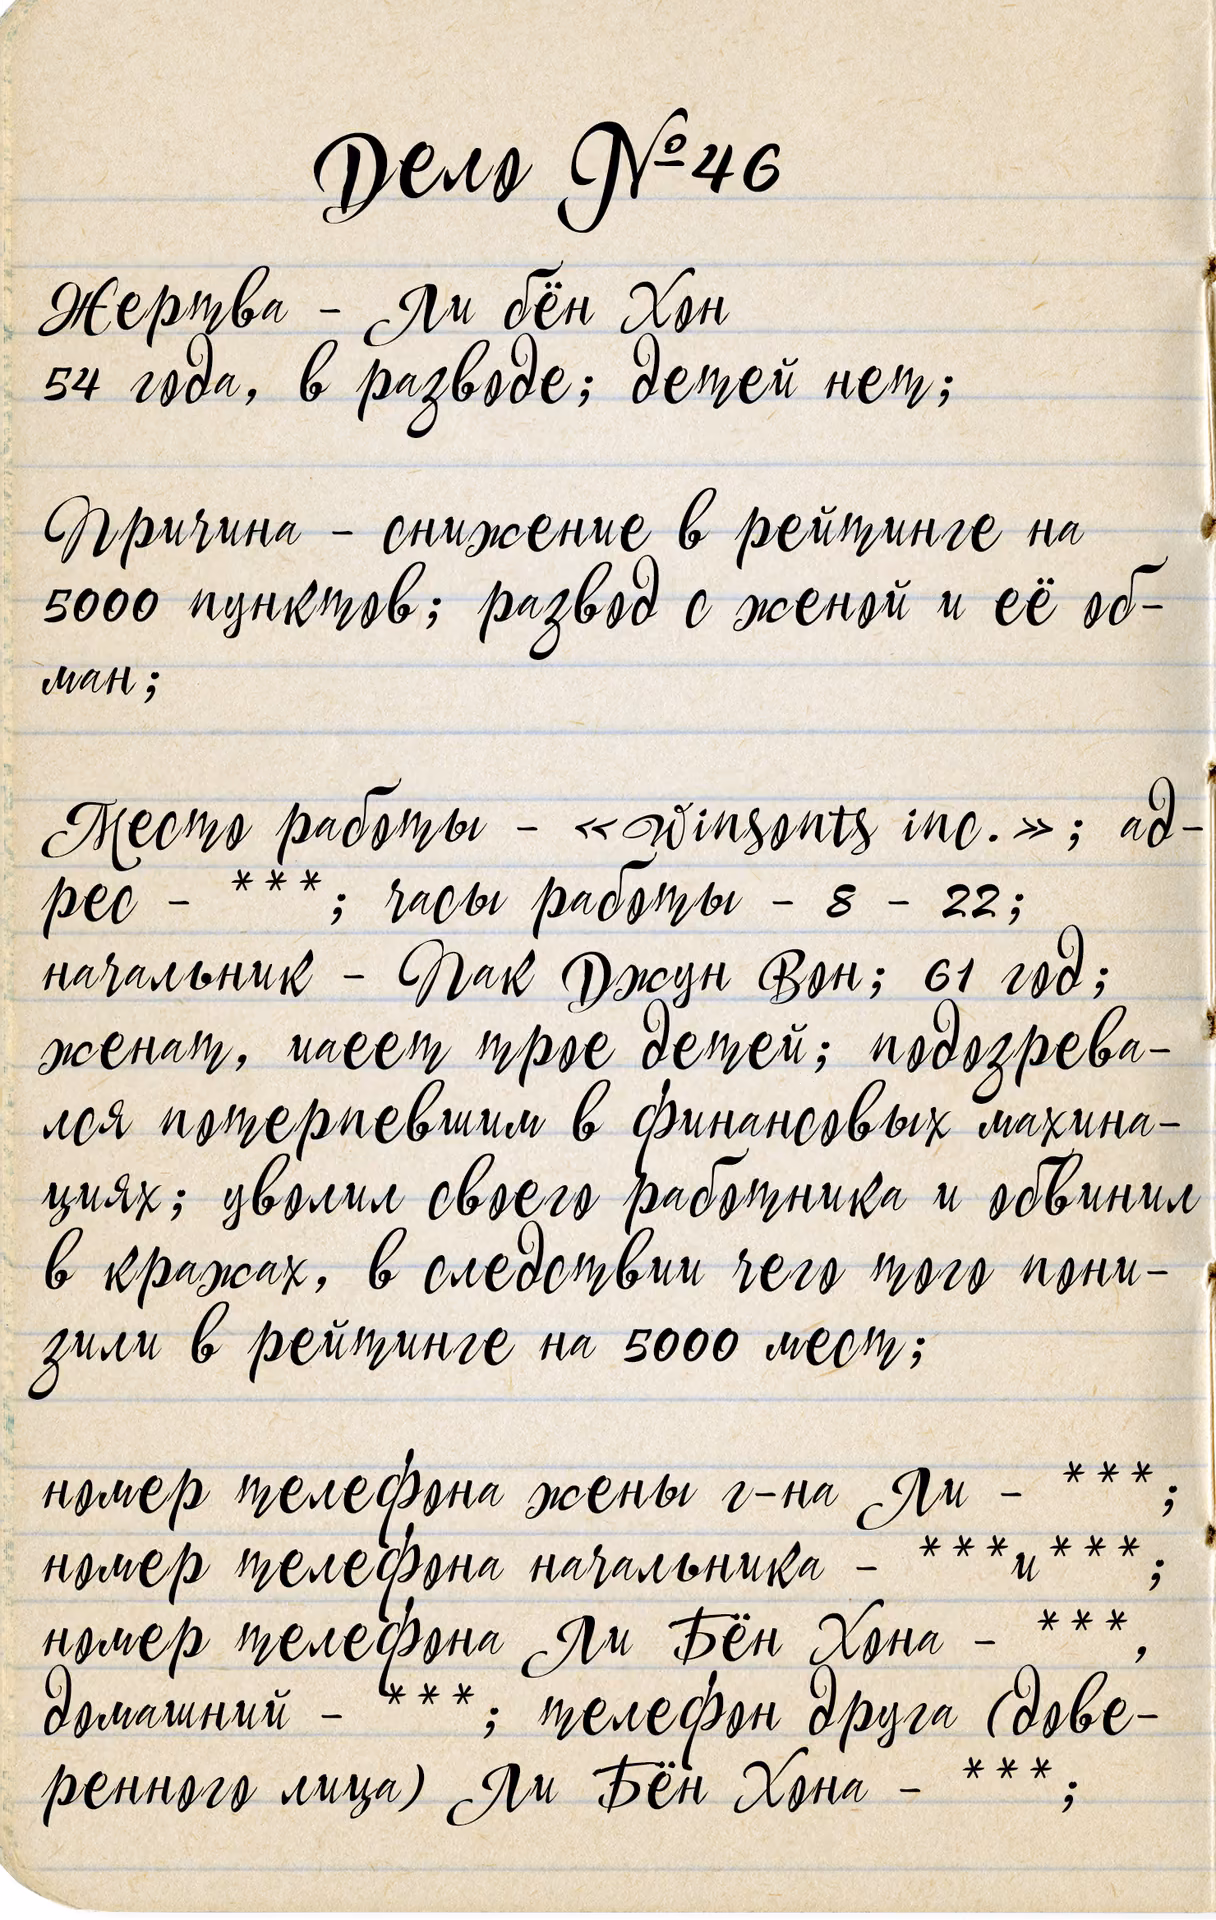 Дело №46
Жертва - Ли бён Хон
54 года, в разводе; детей нет;
Причина - снижение в рейтинге на
5000 пунктов; развод с женой и её об-
ман;
Место работы - «Winsonts inc.»; ад-
рес - ***; часы работы - 8 - 22;
начальник - Пак Джун Вон; 61 год;
женат, иаеет трое детей; подозрева-
лся потерпевшим в финансовых махина-
циях; уволил своего работника и обвинил
в кражах, в следствии чего того пони-
зили в рейтинге на 5000 мест;
номер телефона жены г-на Ли - ***;
номер телефона начальника - ***и***;
номер телефона Ли Бён Хона - ***,
домашний - ***; телефон друга (дове-
ренного лица) Ли Бён Хона - ***;